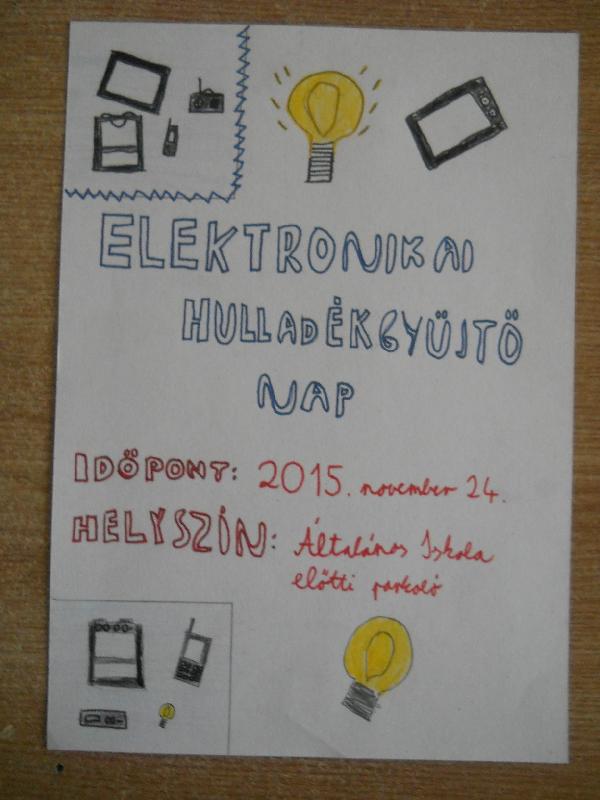 ELEKTRONIKAI
HULLADÉKGYŰJTŐ
NAP
IDŐPONT: 2015. november 24.
HELYSZÍN: Általános Iskola
előtti parkoló